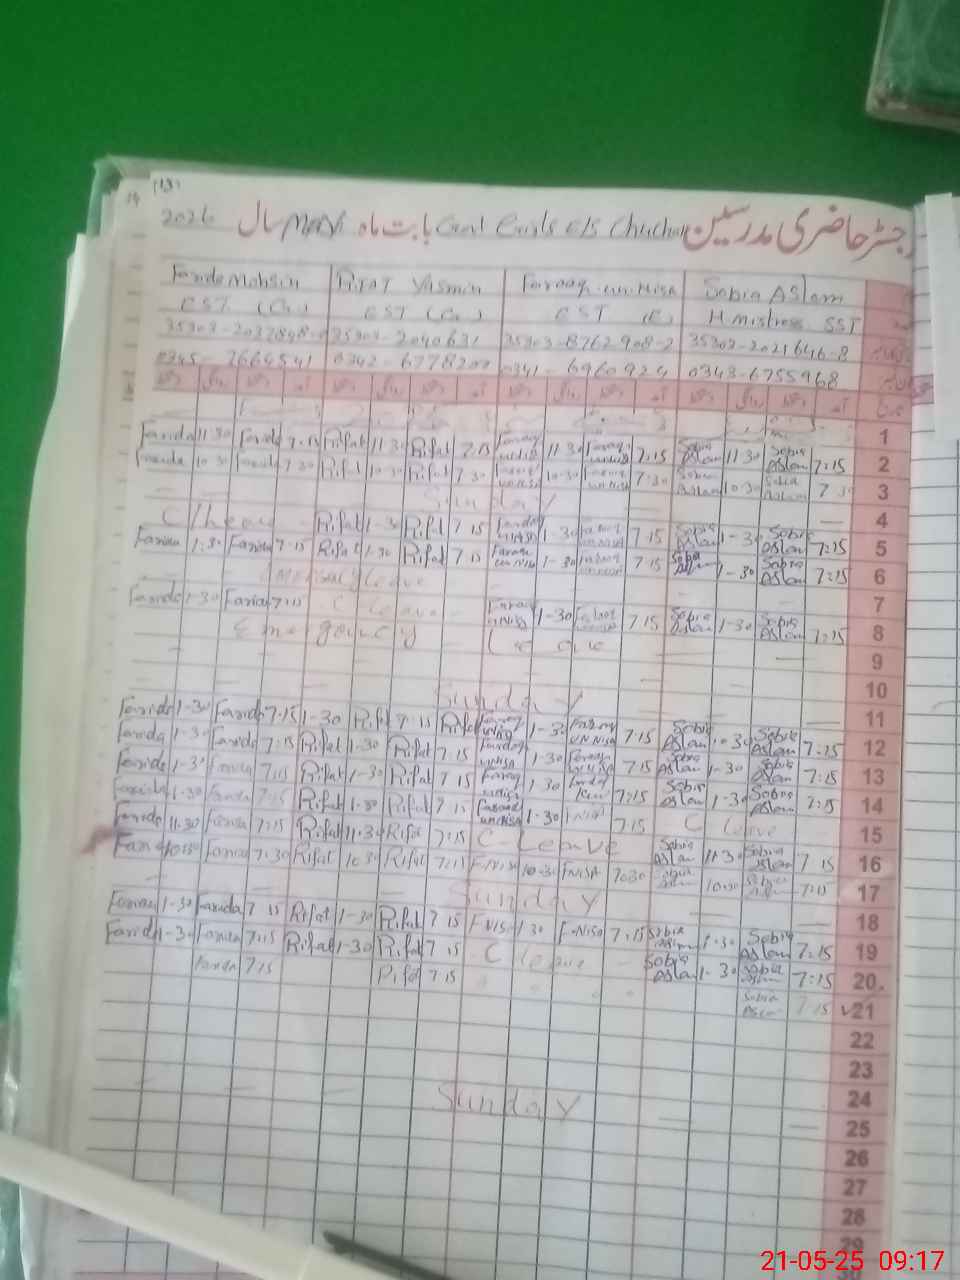 2026 سال May بابت ماہ Govt Girls E/S رجسٹر حاضری مدرسین
Farida Mohsin Rifat Yasmin Farooq-un-Nisa Sobia Aslam
EST (G) EST (G) EST (E) H mistress SST
35303-2040631 35303-8762908-2 35303-2021646-8
0345-7664541 0342-6778209 0341-6960924 0343-6755968
تاریخ
1
Farida 11-30 Farida 7-15 Rifat 11-30 Rifat 7.15 Farooq un Nisa 11-30 Farooq un Nisa 7:15 Sobia Aslam 11-30 Sobia Aslam 7:15 2
Farida 10-30 Farida 7-30 Rifat 10-30 Rifat 7.30 Farooq un Nisa 10-30 Farooq un Nisa 7:30 Sobia Aslam 10-30 Sobia Aslam 7-30 3
Sunday 4
C/Leave Rifat 1-30 Rifat 7-15 Farooq un Nisa 1-30 Farooq un Nisa 7-15 Sobia Aslam 1-30 Sobia Aslam 7:15 5
Farida 1-30 Farida 7-15 Rifat 1-30 Rifat 7-15 Farooq un Nisa 1-30 Farooq un Nisa 7-15 Sobia Aslam 1-30 Sobia Aslam 7:15 6
Emergency leave 7
Farida 1-30 Farida 7-15 C Leave Farooq un Nisa 1-30 Farooq un Nisa 7.15 Sobia Aslam 1-30 Sobia Aslam 7:15 8
Emergency Leave 9
10
Sunday 11
Farida 1-30 Farida 7-15 1-30 Rifat 7-15 Rifat Farooq un Nisa 1-30 Farooq UN Nisa 7-15 Sobia Aslam 1-30 Sobia Aslam 7:15 12
Farida 1-30 Farida 7:15 Rifat 1-30 Rifat 7.15 Farooq un Nisa 1-30 Farooq un Nisa 7-15 Sobia Aslam 1-30 Sobia Aslam 7:15 13
Farida 1-30 Farida 7.15 Rifat 1-30 Rifat 7-15 Farooq un Nisa 1-30 7:15 Sobia Aslam 1-30 Sobia Aslam 7:15 14
Farida 1-30 Farida 7-15 Rifat 1-30 Rifat 7-15 Farooq un Nisa 1-30 7.15 C Leave 15
Farida 11.30 Farida 7:15 Rifat 11.30 Rifat 7:15 C-Leave Sobia Aslam 11-30 Sobia Aslam 7-15 16
Farida 10-30 Farida 7-30 Rifat 10.30 Rifat 7:15 F-Nisa 10-30 F-Nisa 7:30 Sobia Aslam 10-30 Sobia Aslam 7:15 17
Sunday 18
Farida 1-30 Farida 7-15 Rifat 1-30 Rifat 7-15 F-Nisa 1-30 F-Nisa 7:15 Sobia Aslam 1-30 Sobia Aslam 7:15 19
Farida 1-30 Farida 7-15 Rifat 1-30 Rifat 7.15 C leave Sobia Aslam 1-30 Sobia Aslam 7:15 20
Farida 7:15 Rifat 7.15 Sobia Aslam 7-15 21
22
23
24
Sunday 25
26
27
28
29
21-05-25 09:17